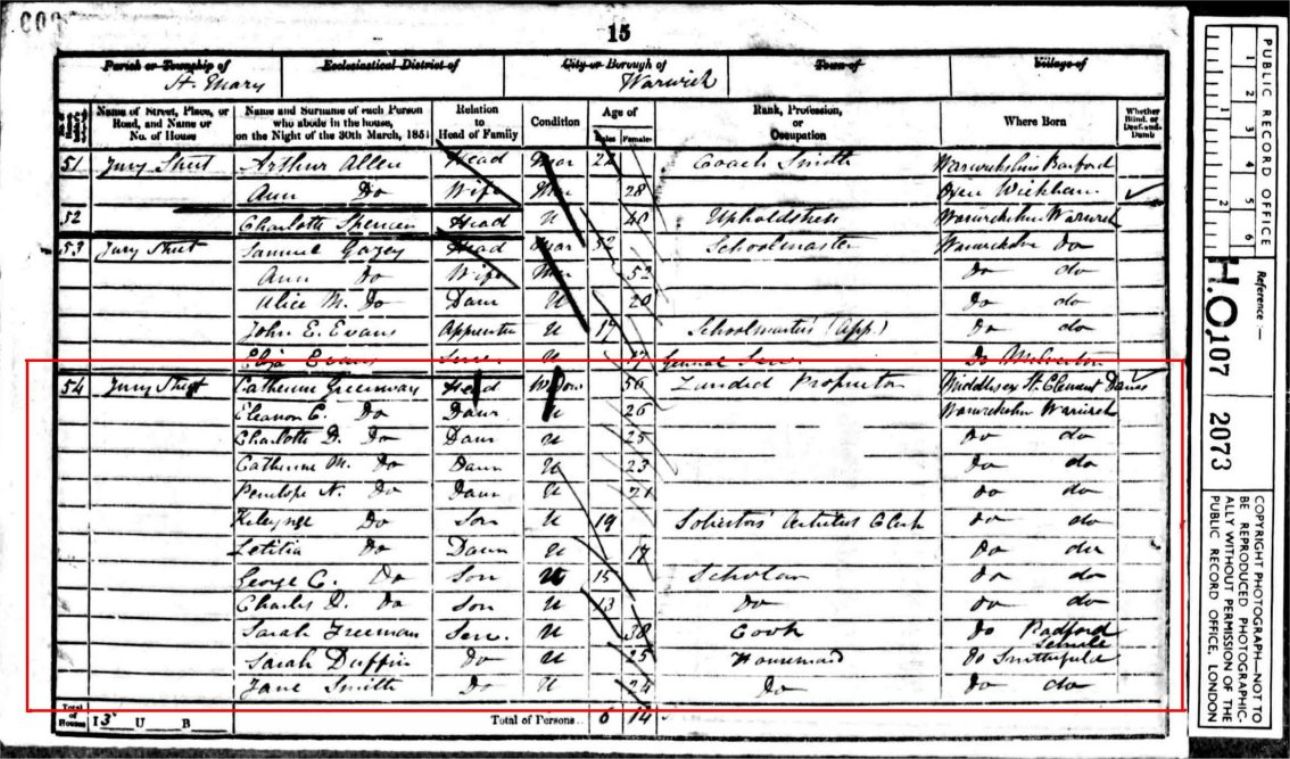 15
Parish or Township of Ecclesiastical District of City or Borough of Town of Village of
St. Mary Warwick
Name of Street, Place, or Road, and Name or No. of House
Name and Surname of each Person who abode in the house, on the Night of the 30th March, 1851
Relation to Head of Family
Condition
Age of
Males Females
Rank, Profession, or Occupation
Where Born
Whether Blind, or Deaf-and-Dumb
51 Jury Street Arthur Allen Head Mar Coach Smith Warwickshire Barford
Ann Do Wife Mar 28 Oxon Wickham
52 Charlotte Spencer Head U 40 Upholstress Warwickshire Warwick
53 Jury Street Samuel Gazey Head Mar 52 Schoolmaster Warwickshire Do
Ann Do Wife Mar 52 Do do
Alice M. Do Daur U 20 Do do
John E. Evans Apprentice U 17 Schoolmaster's (App.) Do do
Eliza Evans Serv. U 17 General Serv. Do Milverton
54 Jury Street Catherine Greenway Head Widow 56 Landed Proprietor Middlesex St. Clement Danes
Eleanor C. Do Daur U 26 Warwickshire Warwick
Charlotte D. Do Daur U 25 Do do
Catherine M. Do Daur U 23 Do do
Penelope N. Do Daur U 21 Do do
Kelynge Do Son U 19 Solicitors' Articled Clerk Do do
Letitia Do Daur U 17 Do do
George C. Do Son U 15 Scholar Do do
Charles D. Do Son U 13 Do Do do
Sarah Freeman Serv. U 38 Cook Do Radford Semele
Sarah Duffin Do U 25 Housemaid Do Snitterfield
Jane Smith Do U 24 Do Do do
Total of Houses 13 U B Total of Persons.. 6 14
PUBLIC RECORD OFFICE
1 2 3 4 5 6
1 2
Reference :—
H.O. 107 2073
COPYRIGHT PHOTOGRAPH—NOT TO BE REPRODUCED PHOTOGRAPHICALLY WITHOUT PERMISSION OF THE PUBLIC RECORD OFFICE, LONDON